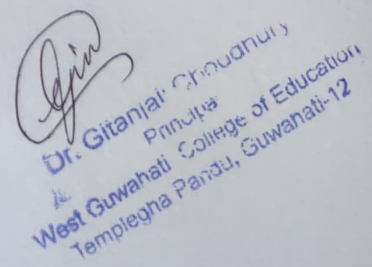 Dr. Gitanjali Choudhury
Principal
West Guwahati College of Education
Templegha Pandu, Guwahati-12